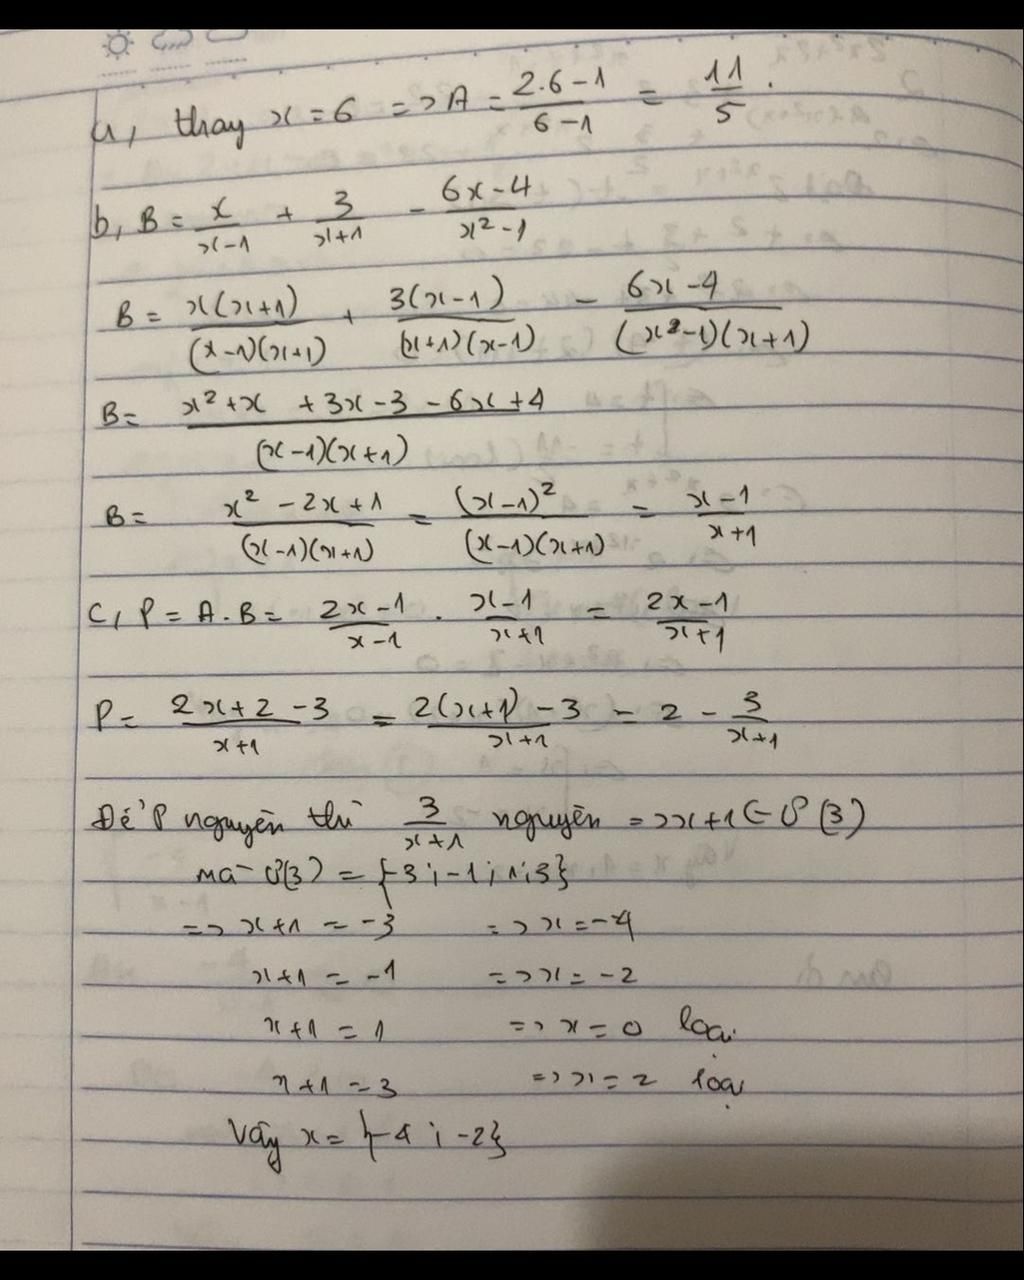 a, thay x = 6 => A = (2.6 - 1)/(6 - 1) = 11/5.
b, B = x/(x-1) + 3/(x+1) - (6x-4)/(x²-1)
B = x(x+1)/((x-1)(x+1)) + 3(x-1)/((x+1)(x-1)) - (6x-4)/((x²-1)(x+1))
B = (x²+x + 3x-3 - 6x+4)/((x-1)(x+1))
B = (x² - 2x + 1)/((x-1)(x+1)) = (x-1)²/((x-1)(x+1)) = (x-1)/(x+1)
c, P = A.B = (2x-1)/(x-1) . (x-1)/(x+1) = (2x-1)/(x+1)
P = (2x+2-3)/(x+1) = (2(x+1)-3)/(x+1) = 2 - 3/(x+1)
Để P nguyên thì 3/(x+1) nguyên => x+1 ∈ Ư(3)
mà Ư(3) = {-3; -1; 1; 3}
=> x+1 = -3 => x = -4
x+1 = -1 => x = -2
x+1 = 1 => x = 0 loại
x+1 = 3 => x = 2 loại
Vậy x = {-4; -2}